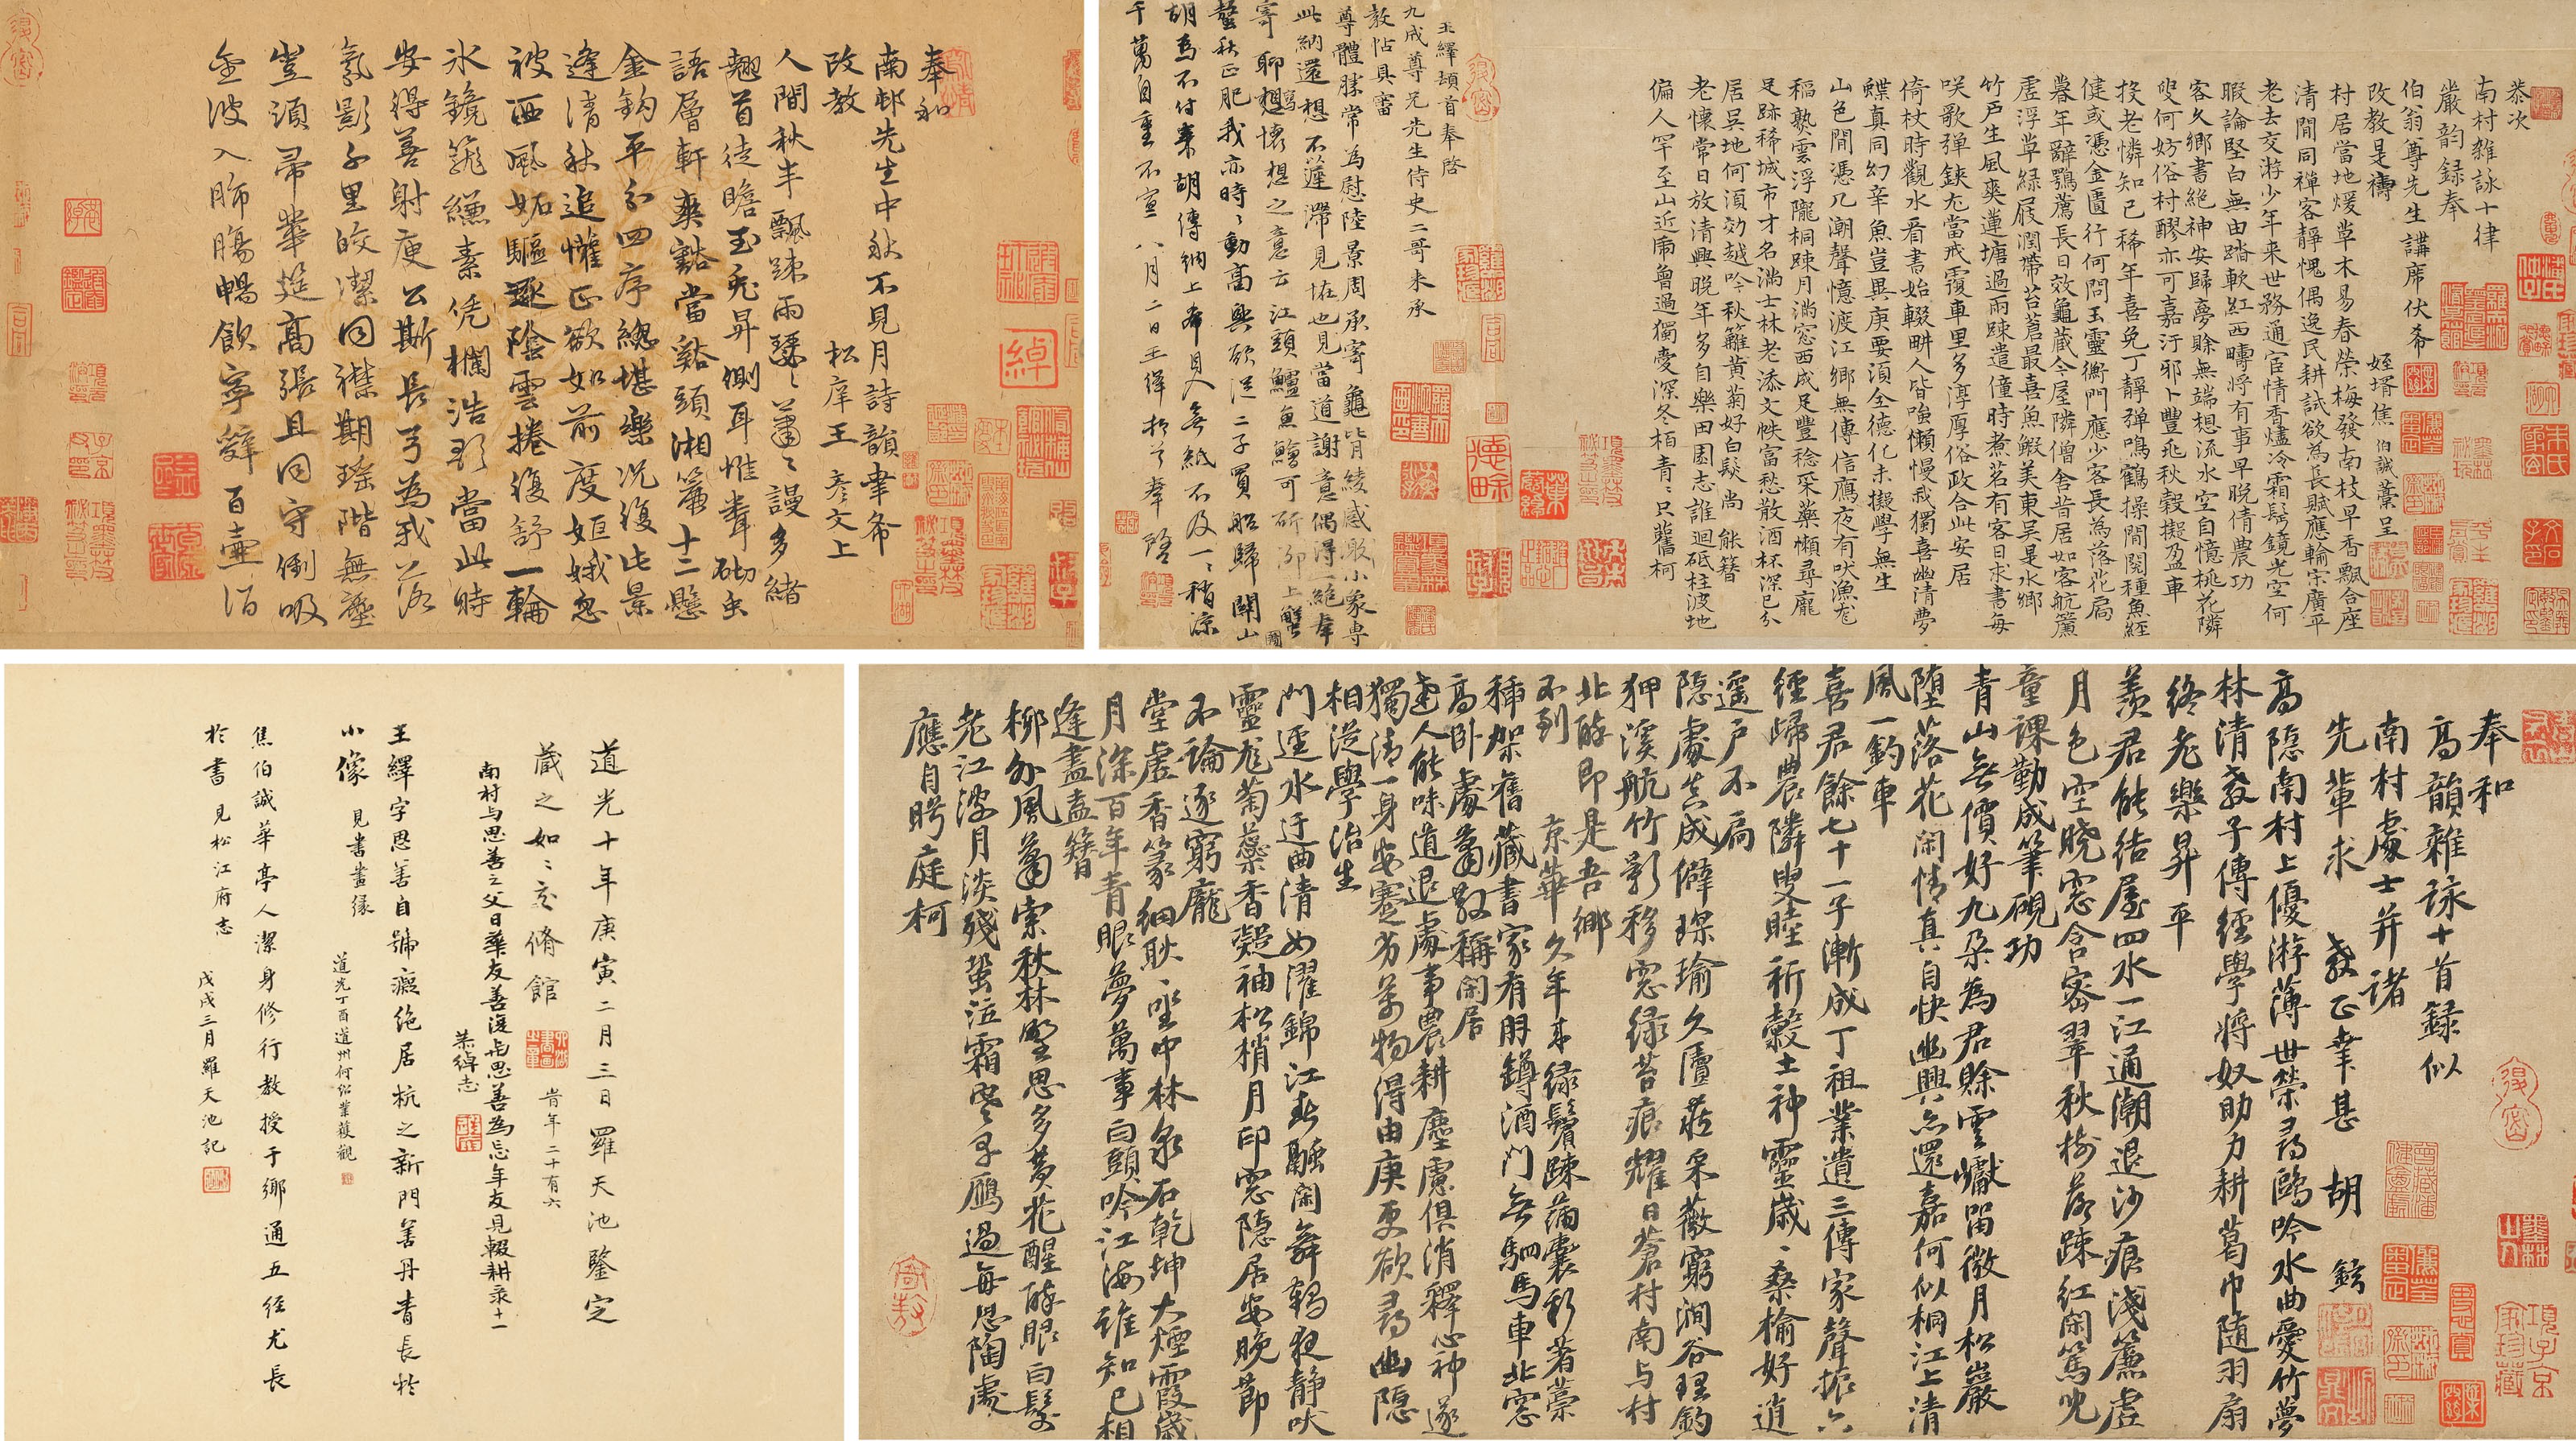 奉和
南邨先生中秋不見月詩韻聿希
改教　松庠王彥文上
人間秋半飄疎雨瑟々蕭々謾多緒
翹首徒瞻玉兔昇側耳惟聋砌虫
語層軒爽豁當谿頭湘簾十二懸
金鈎平分四序總堪樂况復此景
逢清秋追懽正欲如前度姮娥忽
被西風妬驅逐陰雲捲復舒一輪
冰鏡籠縑素凭欄浩歌當此時
安得善射庾公斯長弓為我落
氛影千里皎潔同襟期瑤階無塵
豈須帚華筵高張且同守倒吸
金波入肺腸暢飲寧辭百壷酒
恭次
南村雑詠十律
嚴韵録奉
伯翁尊先生講席伏希
改教是禱　姪壻焦伯誠藁呈
村居當地煖草木易春榮梅發南枝早香飄合座
清閒同禪客靜愧偶逸民耕試欲為長賦應輸宗廣平
老去交游少年来世務通宦情香燼冷霜鬂鏡光空何
暇論堅白無由踏軟紅西疇将有事早晚倩農功
客久鄉書絶神安歸夢賖無端想流水空自憶桃花隣
叟何妨俗村醪亦可嘉汙耶卜豐兆秋穀擬盈車
投老憐知已稀年喜免丁靜弹鳴鶴操閒閱種魚経
健或憑金匱行何問玉靈衡門應少客長為落花扃
暮年辭鶚薦長日效龜藏今屋隣僧舍昔居如客航簾
虛浮草綠屐潤帶苔蒼最喜魚鰕美東吴是水鄉
竹戶生風爽蓮塘過雨疎遣僮時煮茗有客日求書每
咲歌弹鋏尤當戒覆車里多淳厚俗政合此安居
倚杖時觀水看書始輟畊人皆嗤懶慢我獨喜幽清夢
蝶真同幻辛魚豈異庚要須全德化未擬學無生
山色閒憑几潮聲憶渡江鄉無傳信鴈夜有吠漁尨
稲熟雲浮隴桐踈月滿窓西成足豐稔采藥懶尋龐
足跡稀城市才名滿士林老添文帙富愁散酒杯深已分
居吴地何須効越吟秋籬黃菊好白髮尚能簪
老懷常日放清興晚年多自樂田園志誰迴砥柱波地
偏人罕至山近席魯過獨憂深冬栢青々只舊柯
王繹頓首奉啓
九成尊兄先生侍史二哥来承
教帖具審
尊體勝常為慰陸景周承寄龜背綾感戢小象専
此納還想不蓮滯見怪也見當道謝意偶得一絶奉
寄聊寫想懷想之意云江頭鱸魚鱠可斫泖上蟹
螯秋正肥我亦時々動高興欲泛二子買船歸關山
胡為不付来胡傳納上希目入無紙不及一一稍凉
千萬自重不宣八月二日王繹頓首奉啓
奉和
高韻雜詠十首録似
南村處士并諸
先輩求教正幸甚　胡鉉
高隱南村上優游薄世榮尋鷗吟水曲愛竹夢
林清教子傳經學将奴助力耕葛巾隨羽扇
終老樂昇平
羨君能結屋四水一江通潮退沙痕淺簾虛
月色空曉窓含密翠秋樹落踈紅閑篤児
童課勤成筆硯功
青山無價好九朶為君賖雲巘留微月松巖
墮落花閑情真自快幽興亦還嘉何似桐江上清
風一釣車
喜君餘七十一子漸成丁祖業遺三傳家聲振六
經歸農隣叟睦祈穀土神靈歲々桑榆好逍
遥戶不扃
隱處真成僻琛瑜久匵藏采薇窮澗谷理釣
狎溪航竹影移窓綠苔痕耀日蒼村南与村
北醉即是吾鄉
不到京華久年来綠鬢踈蒲囊新著藁
插架舊藏書家有朋鐏酒門無駟馬車北窓
高臥處蕭散稱閑居
達人能味道退處事農耕塵慮俱消釋心神遂
獨清一身安蹇劣萬物得由庚更欲尋幽隱
相從學治生
門逕水迂曲清如濯錦江新飜閑舞鶴夜靜吠
靈尨菊蘂香凝袖松梢月印窓隱居安晚節
不論逐窮龐
堂虛香篆細耿耿坐中林泉石乾坤大煙霞歲
月深百年青眼夢萬事白頭吟江海誰知己相
逢盡盍簪
柳外風蕭索秋林墅思多黄花醒醉眼白髮
老江波月淡殘蛩泣霜空旱鴈過每思陶處
應自眄庭柯
道光十年庚寅二月三日羅天池鑒定
蔵之如々之脩館　旹年二十有六
南村与思善之父日華友善復与思善為忘年友見輟耕录十一
荣綽志
王繹字思善自號癡绝居杭之新門善丹青長於
小像　見書畫缘
道光丁酉道州何绍業獲觀
焦伯誠華亭人潔身修行教授于鄉通五经尤長
於書見松江府志
戊戌三月羅天池記